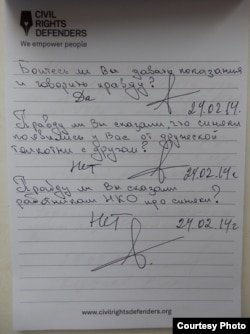 CIVIL
RIGHTS
DEFENDERS
We empower people
Боитесь ли Вы давать показания
и говорить правду?
Да
24.02.14.
Правду ли Вы сказали, что синяки
появились у Вас от дружеской
толкотни с другом?
Нет
24.02.14г
Правду ли Вы сказали
работникам НКО про синяки?
Нет
24.02.14г
www.civilrightsdefenders.org
Courtesy Photo